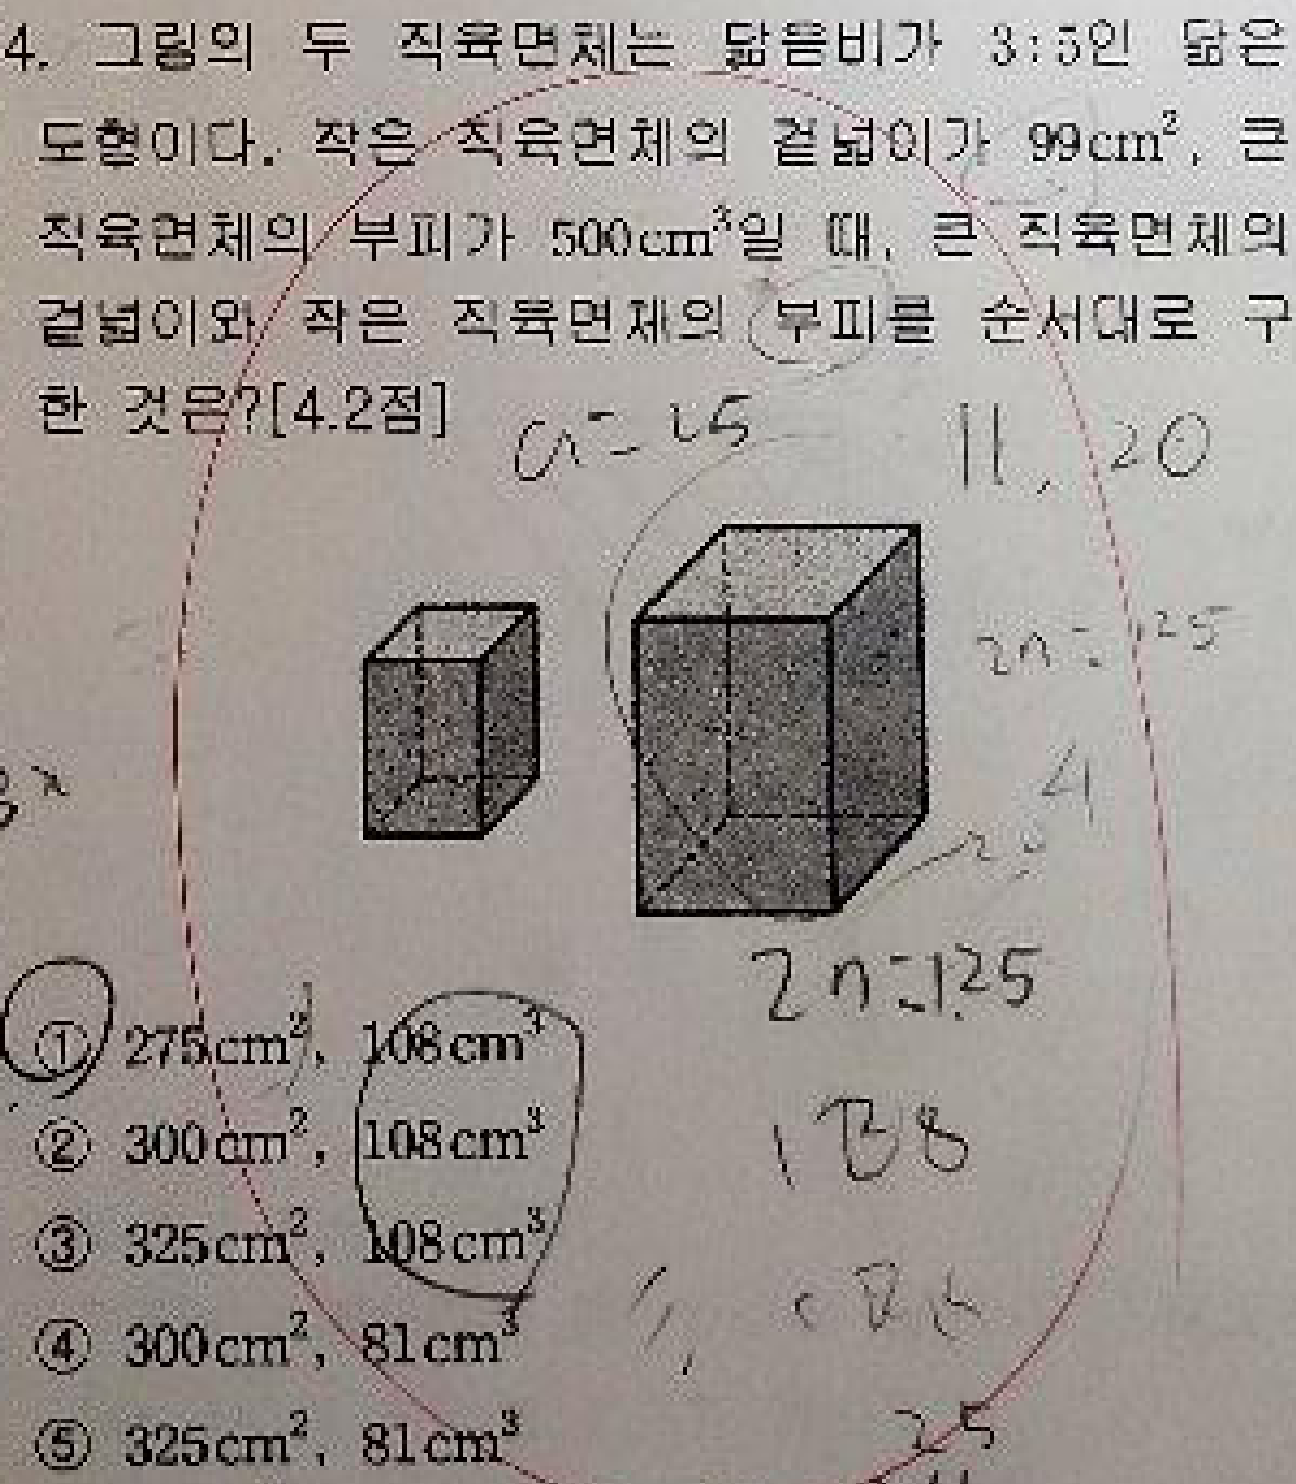 4. 그림의 두 직육면체는 닮음비가 3:5인 닮은
도형이다. 작은 직육면체의 겉넓이가 99cm², 큰
직육면체의 부피가 500cm³일 때, 큰 직육면체의
겉넓이와 작은 직육면체의 부피를 순서대로 구
한 것은?[4.2점]
a=25
11, 20
2n=125
4
20
3x
2n=125
① 275cm², 108cm³
② 300cm², 108cm³
③ 325cm², 108cm³
④ 300cm², 81cm³
⑤ 325cm², 81cm³
25